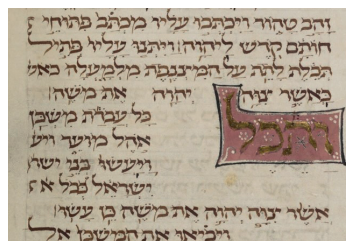 זהב טהור ויכתבו עליו מכתב פתוחי
חותם קדש ליהוה ויתנו עליו פתיל
תכלת לתת על המצנפת מלמעלה כאש
כאשר צוה יהוה את משה
ותכל כל עבדת משכן
אהל מועד ויע
ויעשו בני ישר
ישראל ככל א
אשר צוה יהוה את משה כן עשו
ויביאו את המשכן אל